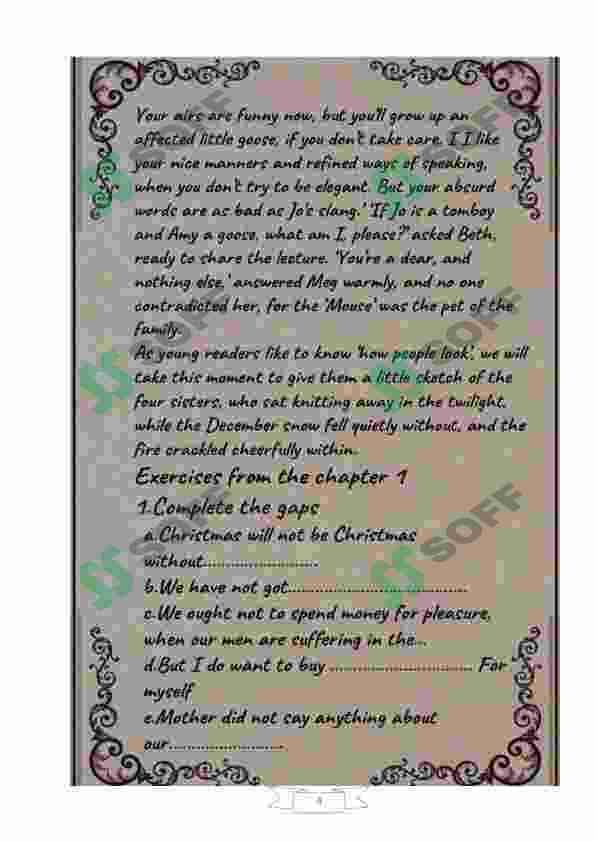 Your airs are funny now, but you'll grow up an
affected little goose, if you don't take care. I I like
your nice manners and refined ways of speaking,
when you don't try to be elegant. But your absurd
words are as bad as Jo's slang.' 'If Jo is a tomboy
and Amy a goose, what am I, please?' asked Beth,
ready to share the lecture. 'You're a dear, and
nothing else,' answered Meg warmly, and no one
contradicted her, for the 'Mouse' was the pet of the
family.
As young readers like to know 'how people look', we will
take this moment to give them a little sketch of the
four sisters, who sat knitting away in the twilight,
while the December snow fell quietly without, and the
fire crackled cheerfully within.
Exercises from the chapter 1
1.Complete the gaps
a.Christmas will not be Christmas
without.........................
b.We have not got.......................................
c.We ought not to spend money for pleasure,
when our men are suffering in the...
d.But I do want to buy................................ For
myself
e.Mother did not say anything about
our.........................
4
SOFF
SOFF
SOFF
SOFF
SOFF
SOFF